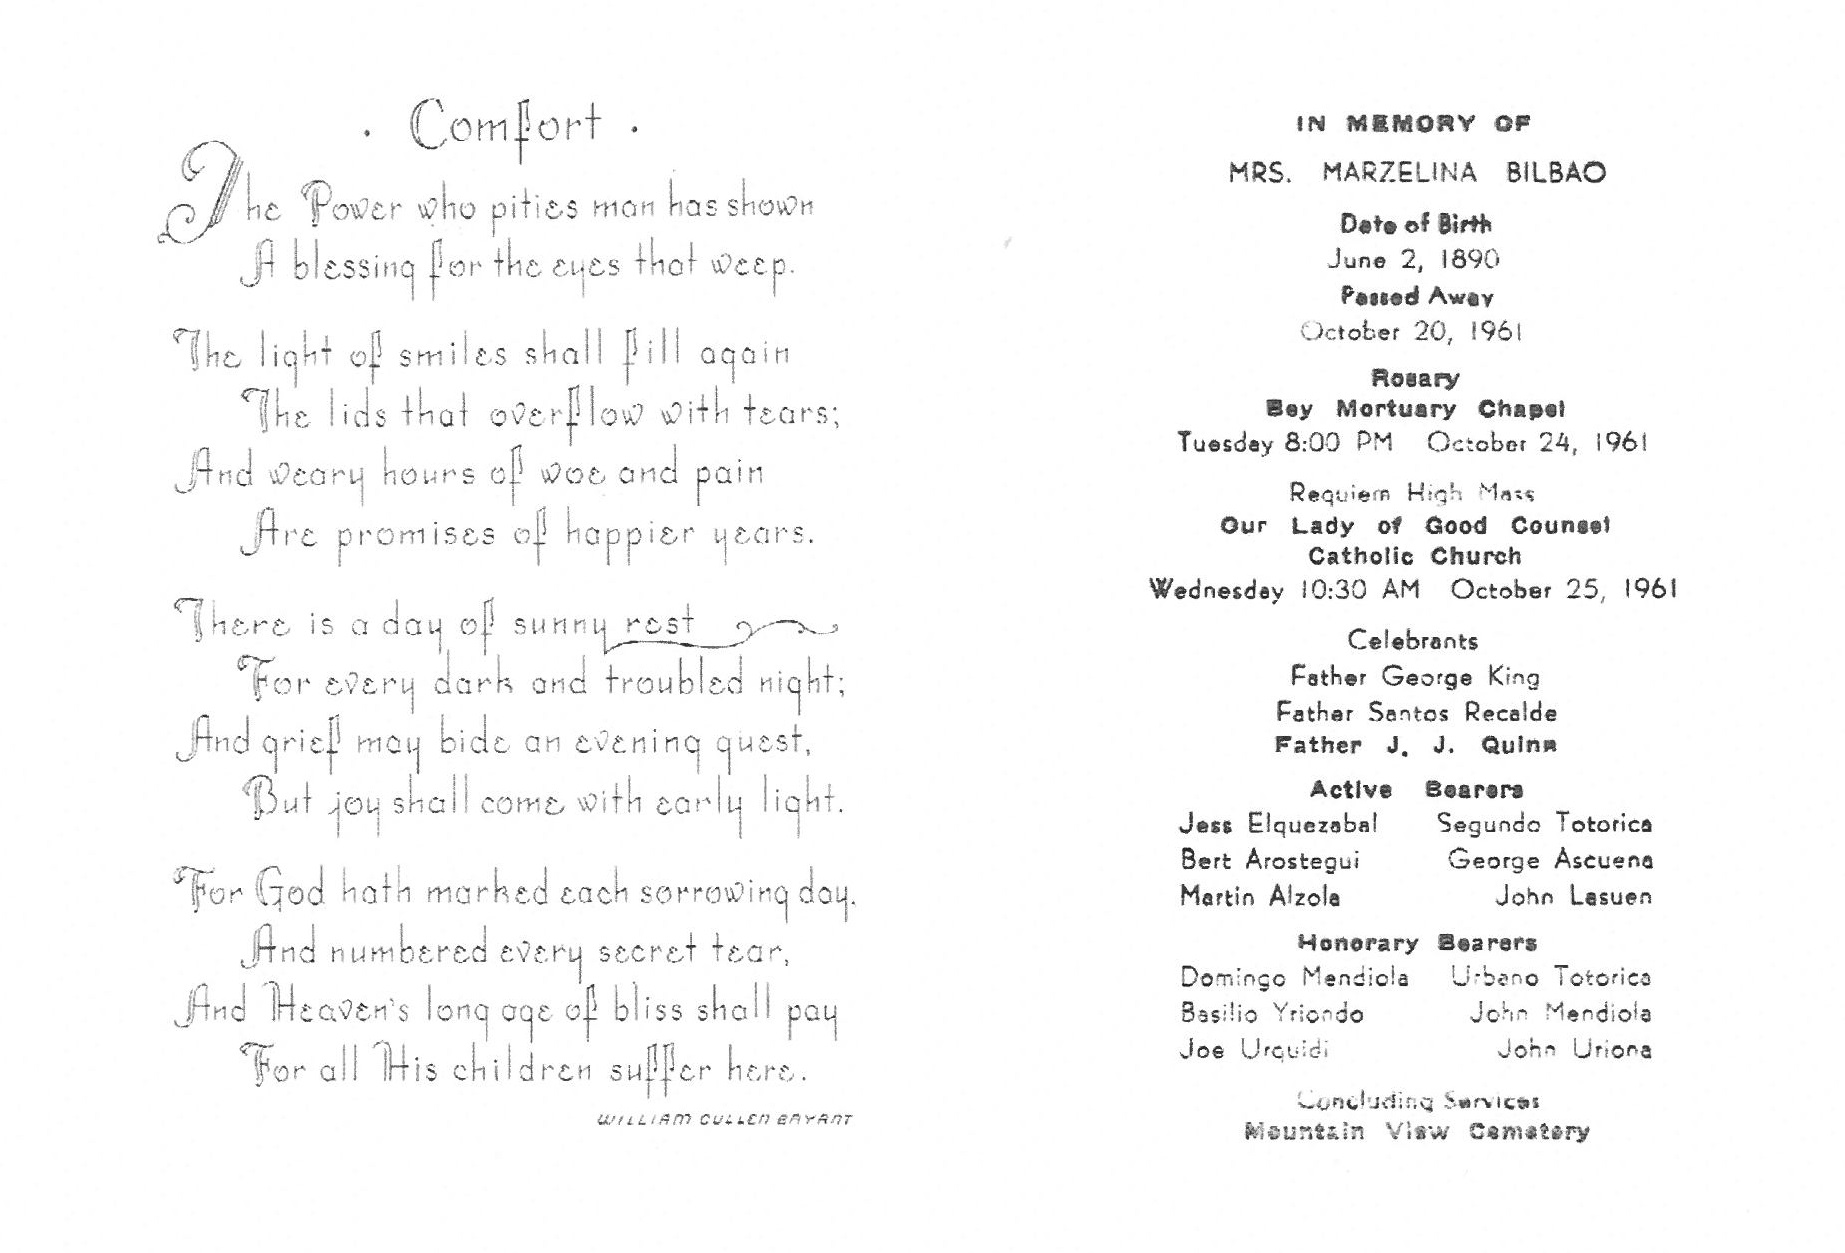 · Comfort ·
The Power who pities man has shown
A blessing for the eyes that weep.
The light of smiles shall fill again
The lids that overflow with tears;
And weary hours of woe and pain
Are promises of happier years.
There is a day of sunny rest
For every dark and troubled night;
And grief may bide an evening guest,
But joy shall come with early light.
For God hath marked each sorrowing day,
And numbered every secret tear,
And Heaven's long age of bliss shall pay
For all His children suffer here.
WILLIAM CULLEN BRYANT
IN MEMORY OF
MRS. MARZELINA BILBAO
Date of Birth
June 2, 1890
Passed Away
October 20, 1961
Rosary
Bey Mortuary Chapel
Tuesday 8:00 PM October 24, 1961
Requiem High Mass
Our Lady of Good Counsel
Catholic Church
Wednesday 10:30 AM October 25, 1961
Celebrants
Father George King
Father Santos Recalde
Father J. J. Quinn
Active Bearers
Jess Elquezabal Segundo Totorica
Bert Arostegui George Ascuena
Martin Alzola John Lasuen
Honorary Bearers
Domingo Mendiola Urbano Totorica
Basilio Yriondo John Mendiola
Joe Urquidi John Uriona
Concluding Services
Mountain View Cemetery